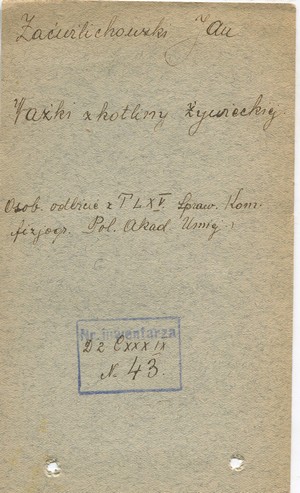 Zaćwilichowski Jan
Ważki z kotliny Żywieckiej
Osob. odbicie z T LXV. Spraw. Kom.
fizjogr. Pol. Akad Umiej.
Nr. inwentarza
Dz CXXXIX
N. 43.